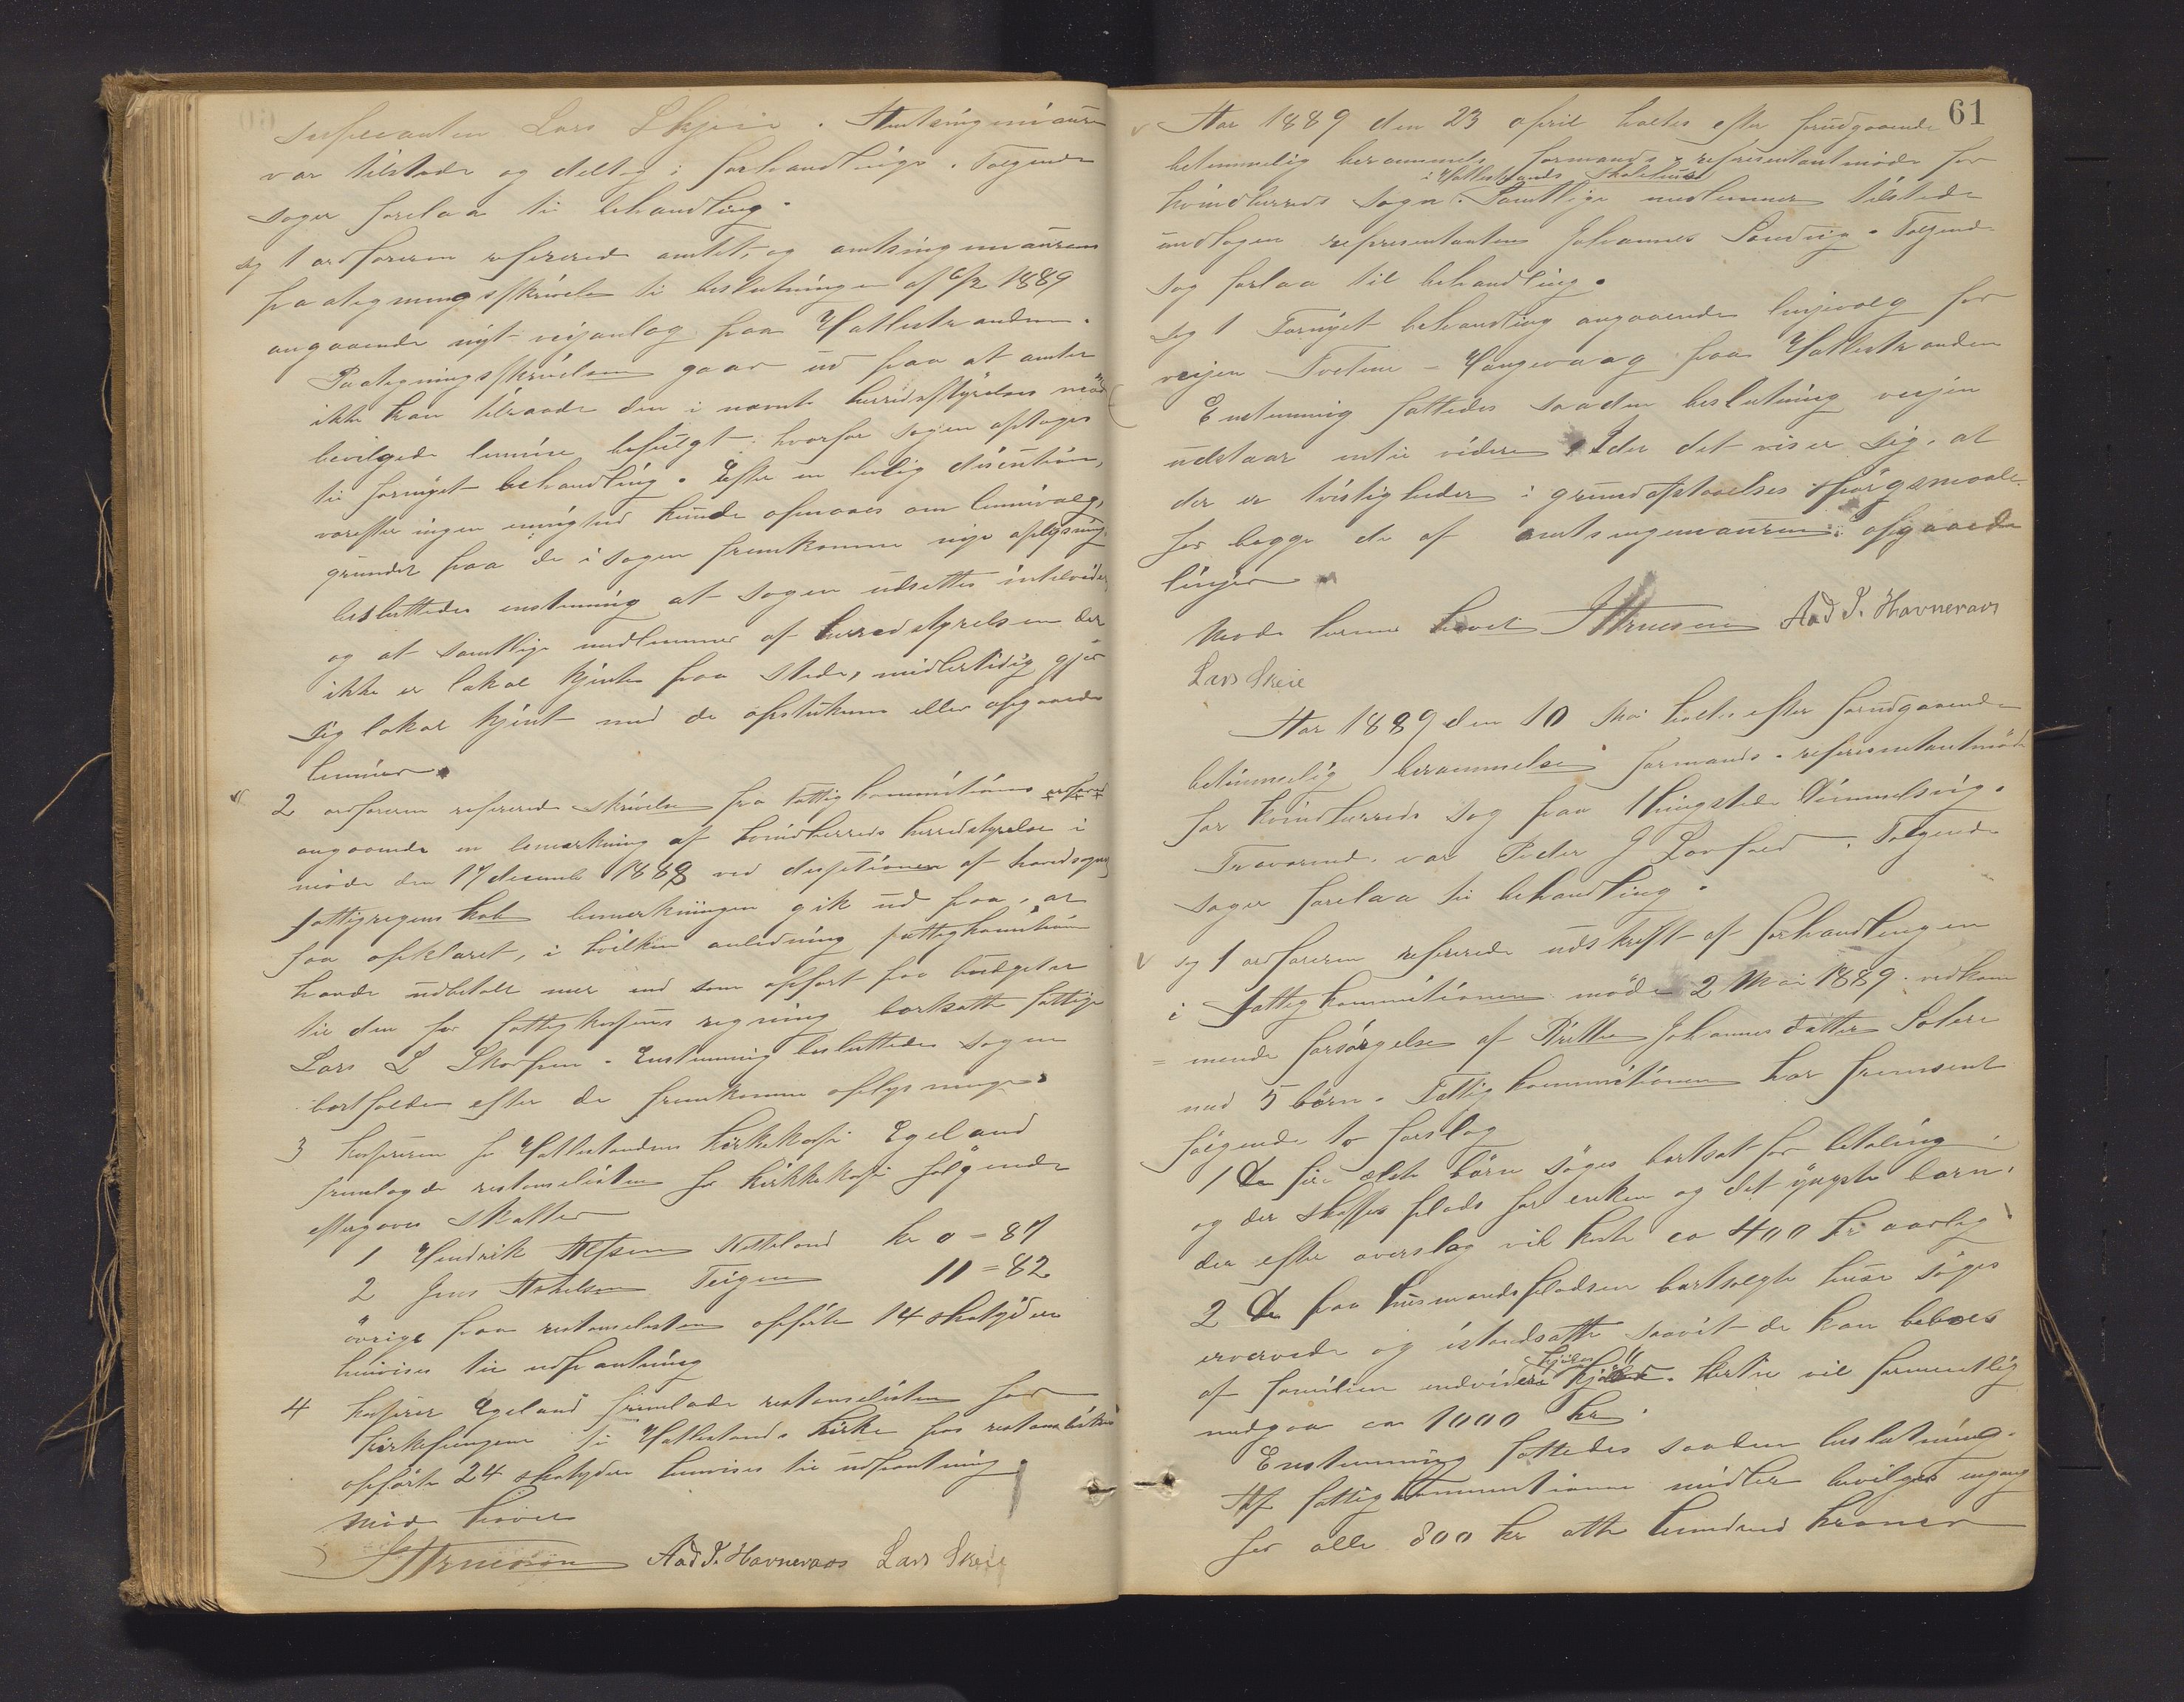 Lars Skjeie. Amtsingeniøren
var tilstede og deltog i forhandlinge. Følgende
sager forelaa til behandling.
Sg 1 ordføreren refererede amtet, og amtsingeniørens
paategningsskrivelse til beslutningen af 6/2 1889
angaaende nyt vejanlæg paa Hatlestranden.
Paategningsskrivelsen gaar ud paa at amtet
ikke kan tilraade den i nævnte herredsstyrelses møde
bevilgede linnie befulgt hvorfor sagen optages
til fornyet behandling. Efter en livlig discution,
vorefter ingen enighed kunde opnaaes om linnivalg,
grundet paa de i sagen fremkomne nye oplysninge
besluttedes enstemmig at sagen udsettes intil videre
og at samtlige medlemmer af herredstyrelsen der
ikke er lokal kjente paa stedet, midlertidig gjør
sig lokal kjent med de opstukne eller opgaaede
linnier.
2 ordføreren refererede skrivelse fra fattigkommitionens ordfører
angaaende en bemærkning af Kvindherreds herredstyrelse i
møde den 17 decemb 1888 ved decitionen af hovedsognets
fattigregenskab bemerkningen gik ud paa, at
faa opklaret, i hvilken anledning fattigkommitionen
havde udbetalt mer end som opført paa budgetet
til den for fattigkassens regning bortsatte fattige
Lars L Skorpen. Enstemmig besluttedes sagen
bortfalden efter de fremkomne oplysninger.
3 kassereren for Hatlestrandens kirkekasse Egeland
fremlagde restanselisten for kirkekasse følgende
eftergaves skatter
1 Hendrik Netteland kr 0=87
2 Jens Teigen 11=82
øvrige paa restanselisten opførte 14 skatydere
henvises til udpantning
4 kasserer Egeland fremlade restanselisten for
kirkepengene til Hatlestrands kirke paa restanselisten
opførte 24 skatydere henvises til udpantning.
Møde hævet
Aad J. Havneraas Lars Skeie
61
Aar 1889 den 23 april holtes efter forudgaaende
betimmelig berammelse formands- representantmøde for
i Hatlestrands skolehus
Kvindherreds sogn. Samtlige medlemmer tilstede
undtagen representanten Johannes Sandvig. Følgende
sag forlaa til behandling.
Sg 1 Fornyet behandling angaaende linjevalg for
veijen Tveitene - Vangevaag paa Hatlestranden
Enstemmig fattedes saaden beslutning veijen
udstaar intil videre. Ider det viser sig, at
der er tvistigheder i grundafstaaelses spørgsmaale
for begge de af amtsingeniøren opgaaede
linjer
Møde hævet Aad J. Havneraas
Lars Skeie
Aar 1889 den 10 Mai holtes efter forudgaaende
betimmelig berammelse formands- representantmøde
for Kvindherreds sog paa thingstedet Dimmelsvig.
Fraværende var Peder J Løvfald. Følgende
sager forelaa til behandling.
Sg 1 ordføreren refererede udskrift af forhandlingen
i fattigkommitionens møde 2 Mai 1889 vedkom
= mende forsørgelse af Britte Johannesdatter
med 5 børn. Fattigkommitionen har fremsent
følgende to forslag
1 De fire ælste børn søges bortsat for betaling
og der skaffes plads for enken og det yngste barn,
der efter overslag vil koste ca 400 kr aarlig
2 De paa husmandspladsen bortsolgte huse søges
erervede og istandsatte saavit de kan beboes
af familien endvidere kjøbes . Hertil vil formentlig
medgaa ca 1000 kr.
Enstemmig fattedes saaden beslutning.
Af fattigkommitionens midler bevilges engang
for alle 800 kr otte hundred kroner